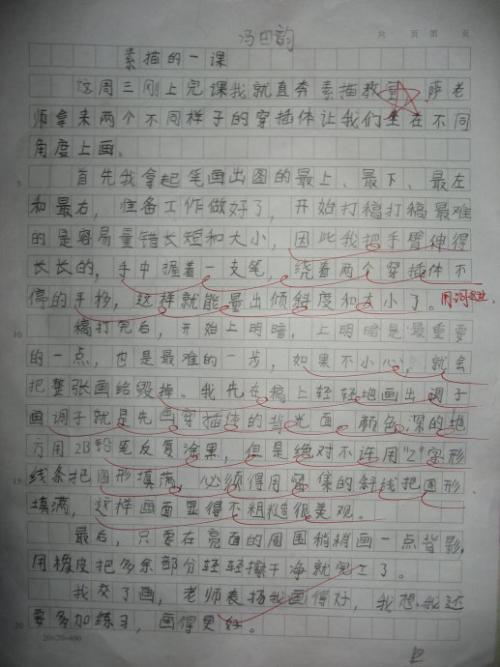 共 页 第 页
冯日韵
素描的一课
这周三刚上完课我就直奔素描教室,萨老
师拿来两个不同样子的穿插体让我们坐在不同
角度上画。
首先我拿起笔画出图的最上、最下、最左
和最右,准备工作做好了,开始打稿打稿最难
的是容易量错长短和大小,因此我把手臂伸得
长长的,手中握着一支笔,绕着两个穿插体不
停的手移,这样就能量出倾斜度和大小了。用词
10 稿打完后,开始上明暗,上明暗是最重要
的一点,也是最难的一步,如果不小心,就会
把整张画给毁掉。我先在稿上轻轻地画出调子
画调子就是先画穿插体的背光面,颜色深的地
方用2B铅笔反复涂黑,但是绝对不准用"Z"字形
15 线条把图形填满,必须得用紧保的斜线把图形
填满,这样画面显得不粗糙很美观。
最后,只要在亮面的周围稍稍画一点背影,
用橡皮把多余部分轻轻擦干净就完工了。
我交了画,老师表扬我画得好,我想,我还
20 要多加练习,画得更好。
20×20=400